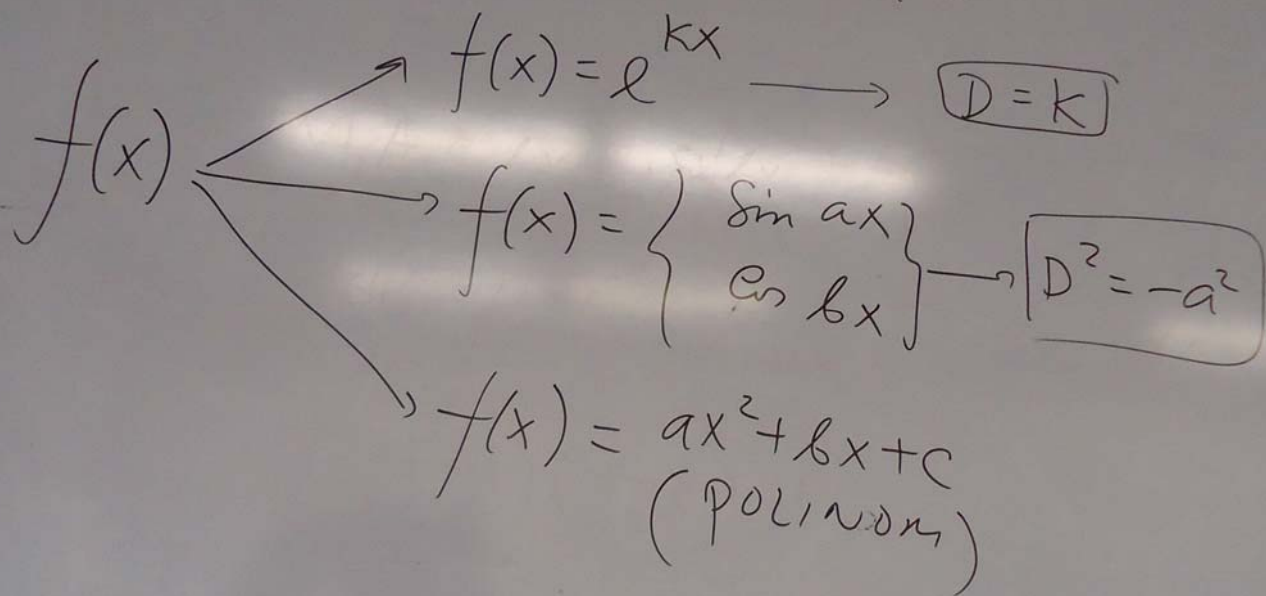 f(x)
f(x) = e^{kx} → D = k
f(x) = { sin ax
cos bx } → D² = -a²
f(x) = ax² + bx + c
(POLINOM)